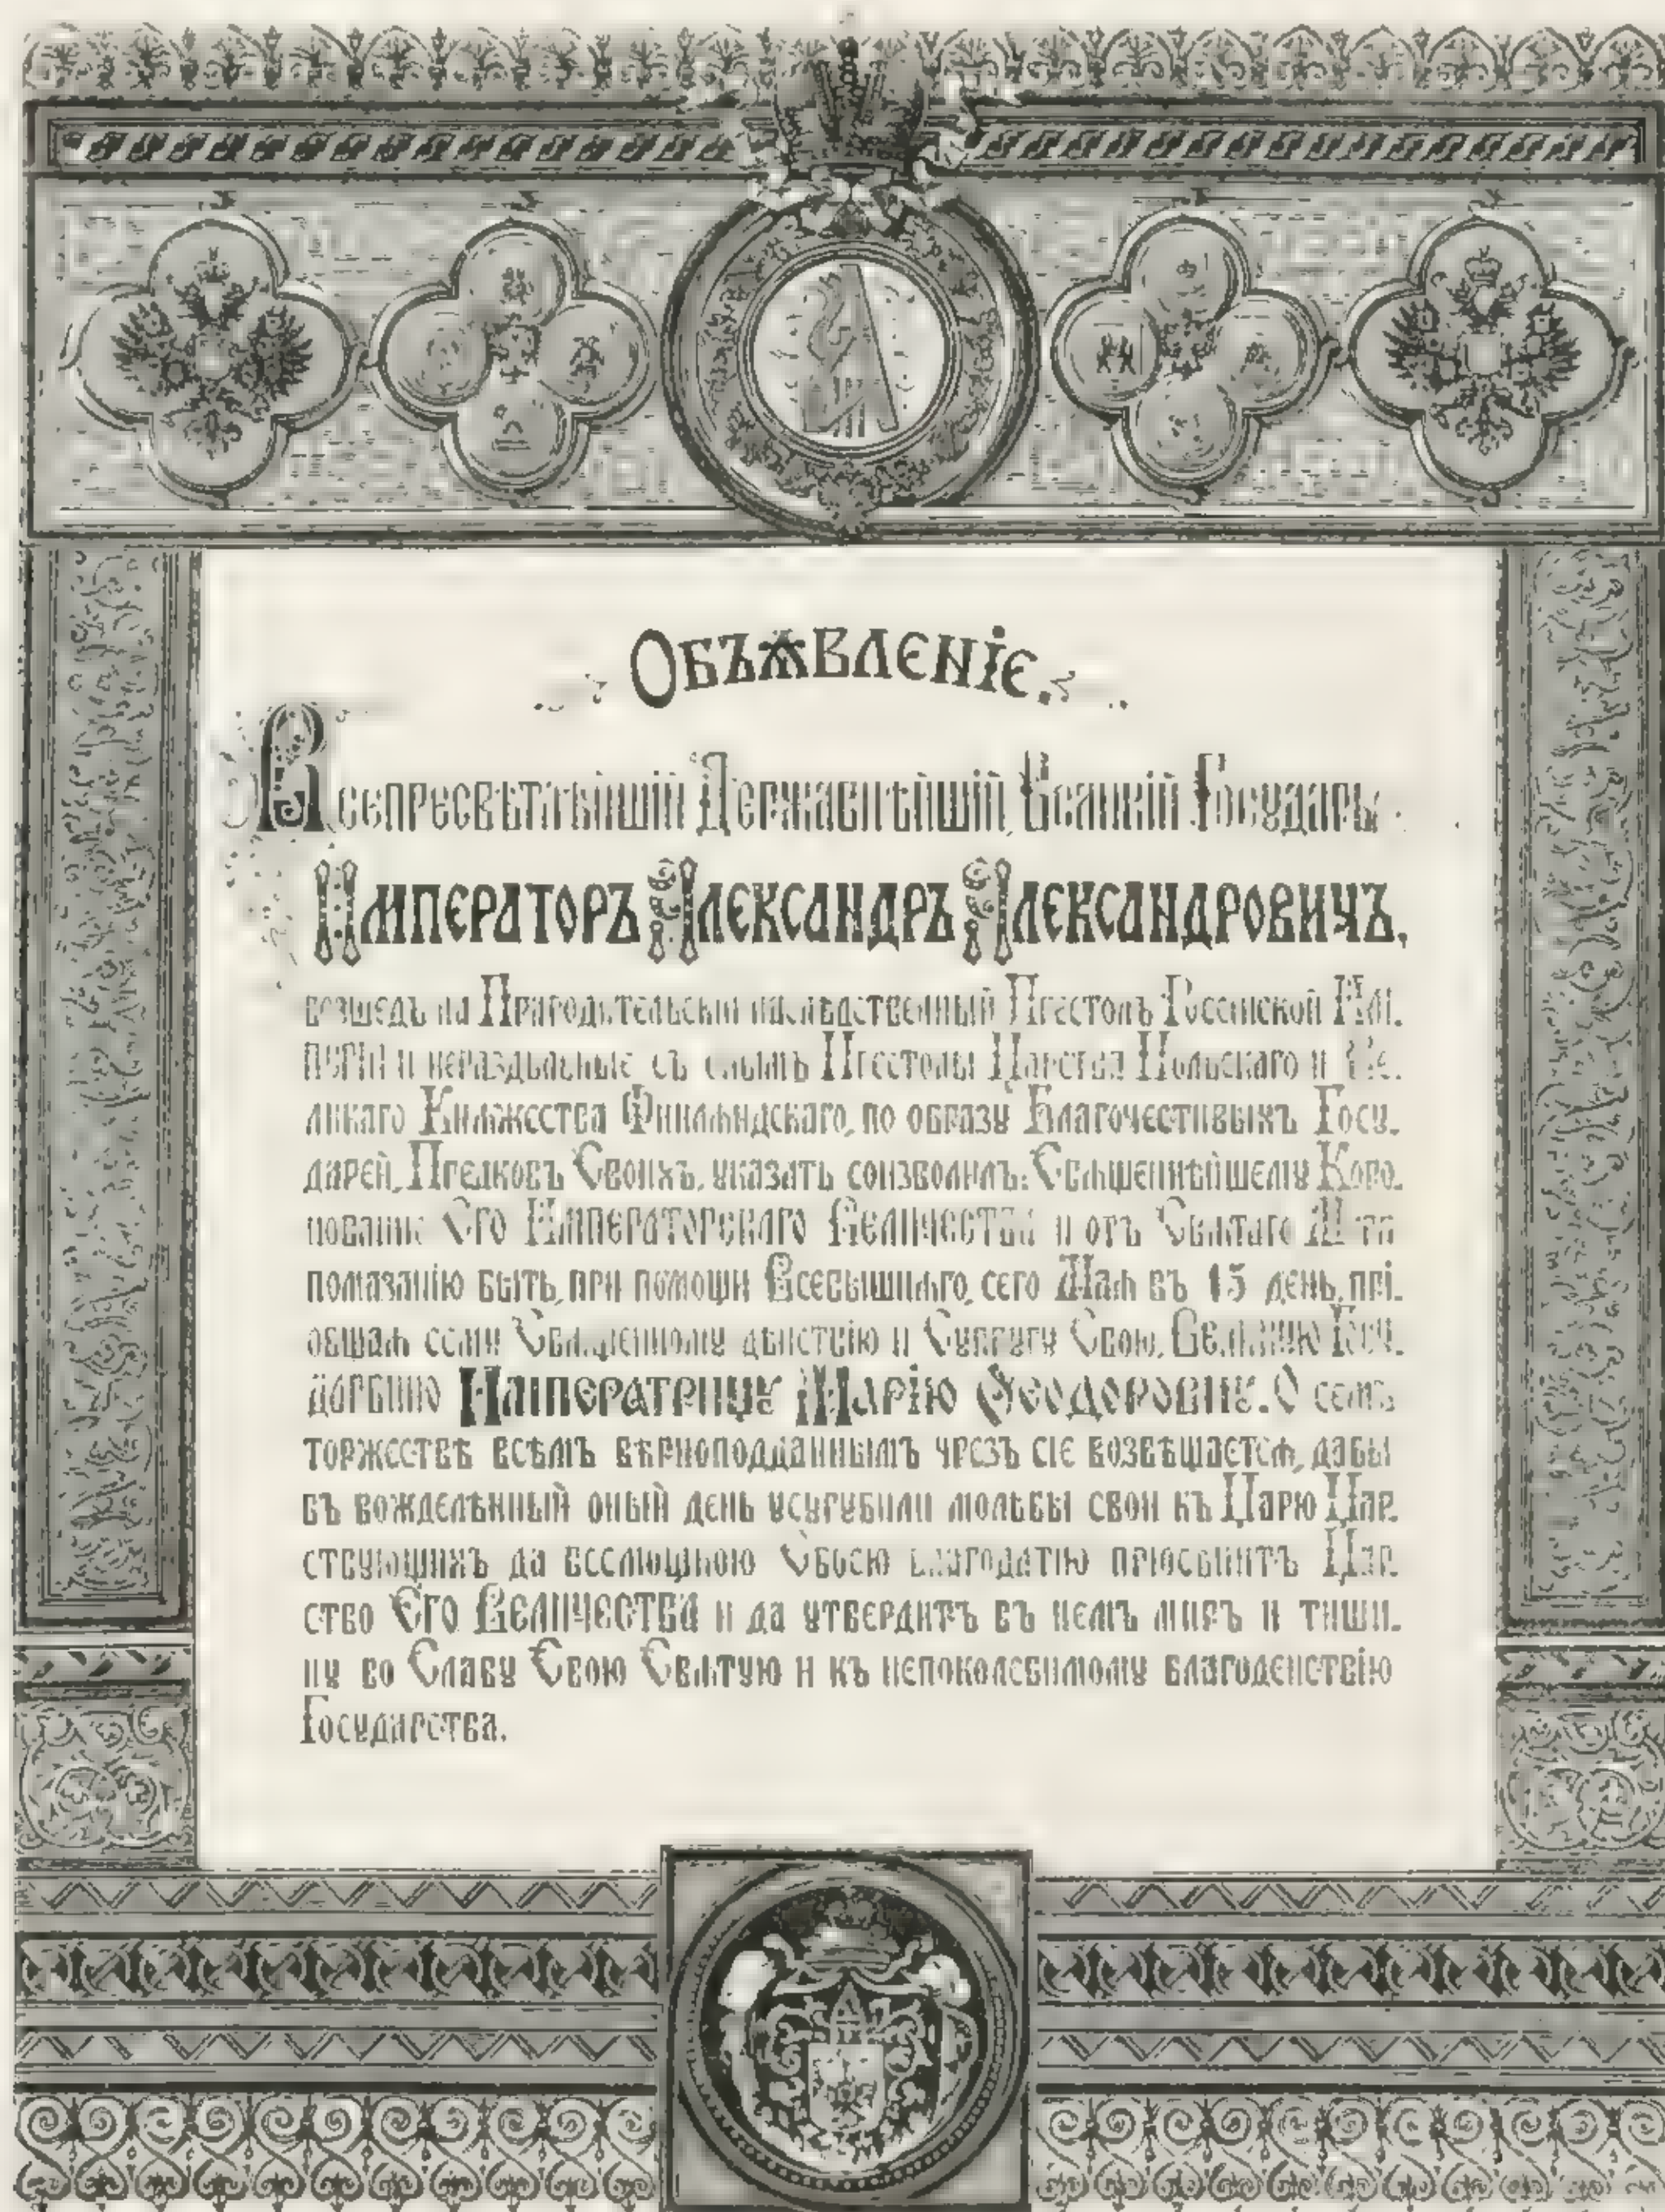 Объѧвленіе.
Всепресвѣтлѣйшій Державнѣйшій Великій Государь
Императоръ Александръ Александровичъ,
возшедъ на Прародительскій наслѣдственный Престолъ Россійской Им-
періи и нераздѣльные съ онымъ Престолы Царства Польскаго и Ве-
ликаго Кнѧжества Финлѧндскаго, по образу Благочестивыхъ Госу-
дарей, Предковъ Своихъ, указать соизволилъ: Свѧщеннѣйшему Коро-
нованію Его Императорскаго Величества и отъ Свѧтаго Мѵра
помазанію быть, при помощи Всевышнѧго, сего Маѧ въ 15 день, прі-
общаѧ сему Свѧщенному дѣйствію и Супругу Свою, Великую Госу-
дарыню Императрицу Марію Ѳеодоровну. О семъ
торжествѣ всѣмъ вѣрноподданнымъ чрезъ сіе возвѣщаетсѧ, дабы
въ вожделѣнный оный день усугубили мольбы свои къ Царю Цар-
ствующихъ да всемощною Своею благодатію пріосѣнитъ Цар-
ство Его Величества и да утвердитъ въ немъ миръ и тиши-
ну во Славу Свою Свѧтую и къ непоколебимому благоденствію
Государства.